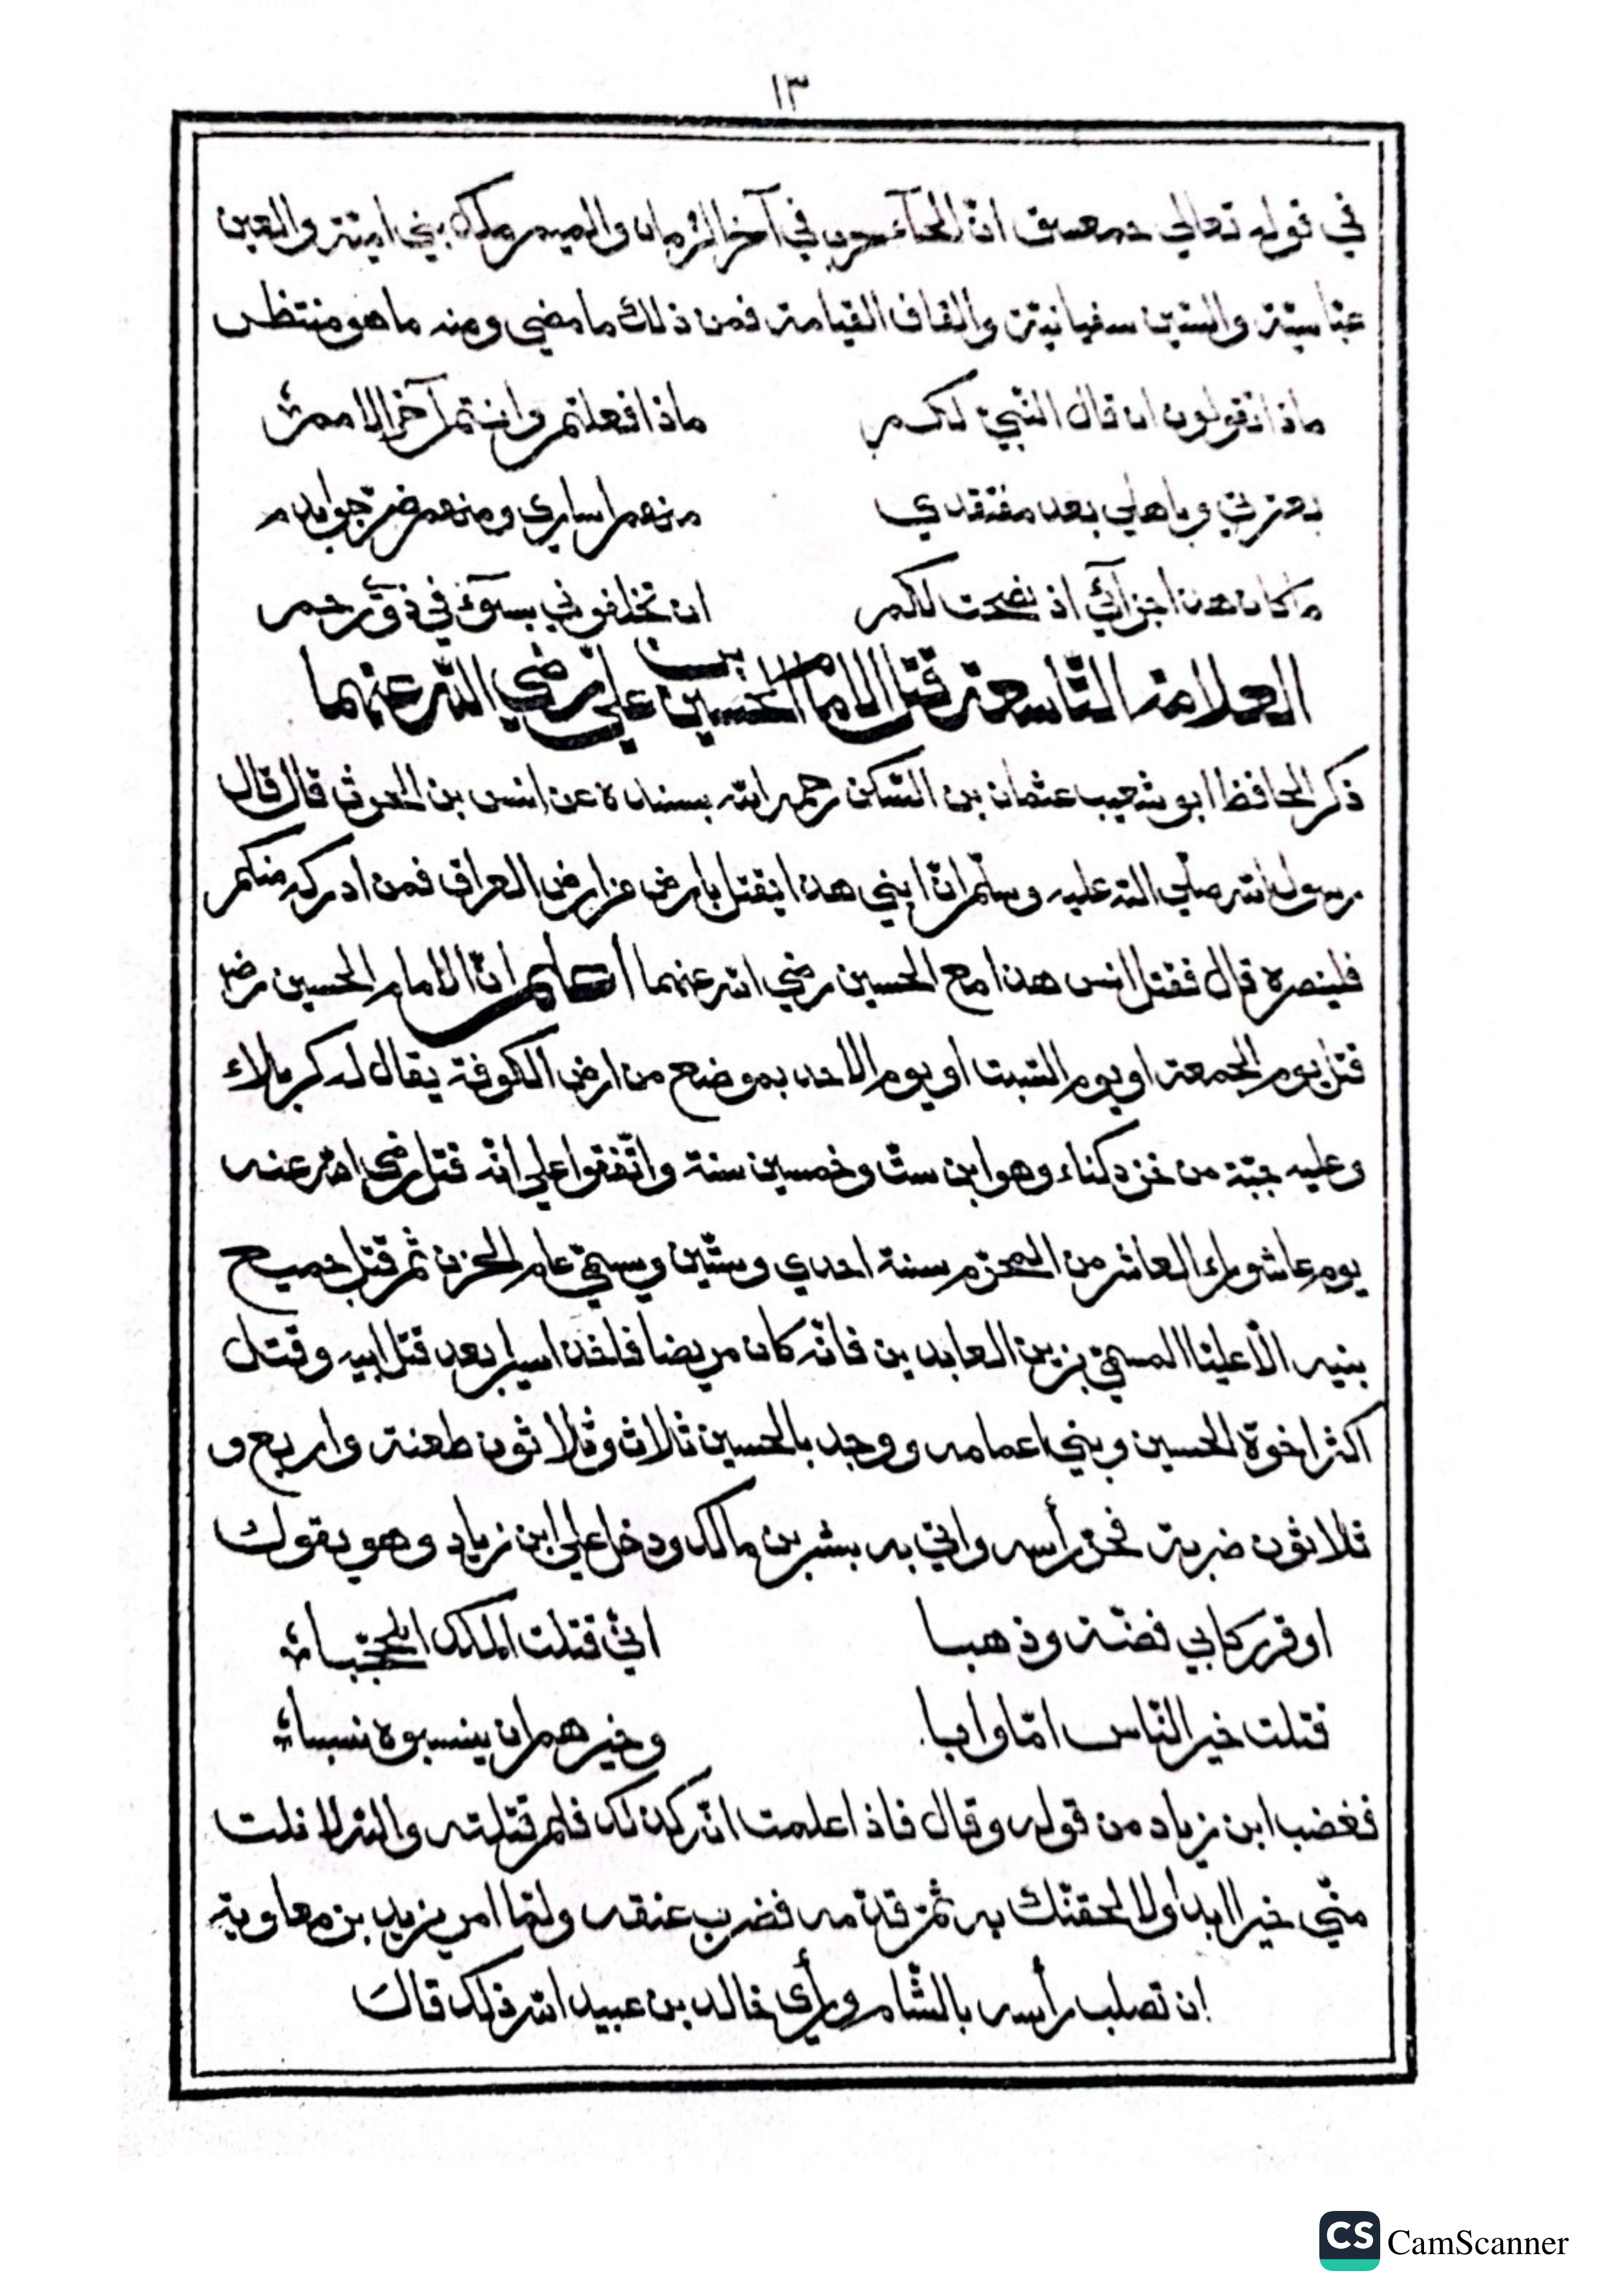 ١٣
في قوله تعالي حمعسق انّ الحآء حرب في آخر الزمان والميم ملك بني اميّة والعين
عبّاسيّة والسّين سفيانيّة والقاف القيامة فمن ذلك ما مضي ومنه ما هو منتظر
ماذا تقولون ان قال النّبيّ لكم ماذا فعلتم وانتم آخر الامم
بعترتي وباهلي بعد مفتقدي منهم اساري ومنهم ضرّجوا بدم
ما كان هذا جزآئي اذ نصحت لكم ان تخلفوني بسوء في ذوي رحم
العلامة التّاسعة قتل الامام الحسين بن علي رضي اللّه عنهما
ذكر الحافظ ابو شعيب عثمان بن السّكن رحمه الله بسنده عن انس بن الحرث قال قال
رسول الله صلّي اللّه عليه وسلّم انّ ابني هذا يقتل بارض من ارض العراق فمن ادركه منكم
فلينصره قال فقتل انس هذا مع الحسين رضي الله عنهما اعلم انّ الامام الحسين رضه
قتل يوم الجمعة او يوم السّبت او يوم الاحد بموضع من ارض الكوفة يقال له كربلاء
وعليه جبّة من خز دكناء وهو ابن ستّ وخمسين سنة واتّفقوا علي انّه قتل رضي الله عنه
يوم عاشوراء العاشر من المحرّم سنة احدي وستّين ويسمّي عام الحزن ثم قتل جميع
بنيه الّا عليّا المسمّي بزين العابدين فانّه كان مريضا فاخذ اسيرا بعد قتل ابيه وقتل
اكثر اخوة الحسين وبني اعمامه ووجد بالحسين ثلاث وثلاثون طعنة واربع و
ثلاثون ضربة فحز رأسه واتي به بشر بن مالك ودخل علي ابن زياد وهو يقول
اوقر ركابي فضّة وذهبا انّي قتلت الملك المحجّبا
قتلت خير النّاس امّا وابا وخيرهم ان ينسبوه نسبا
فغضب ابن زياد من قوله وقال فاذا علمت انّه كذلك فلم قتلته واللّه لا نلت
منّي خيرا ابدا ولالحقنّك به ثمّ قدّمه فضرب عنقه ولمّا امر يزيد بن معاوية
ان تصلب رأسه بالشّام ورأي خالد بن عبيد الله ذلك قال
CS CamScanner